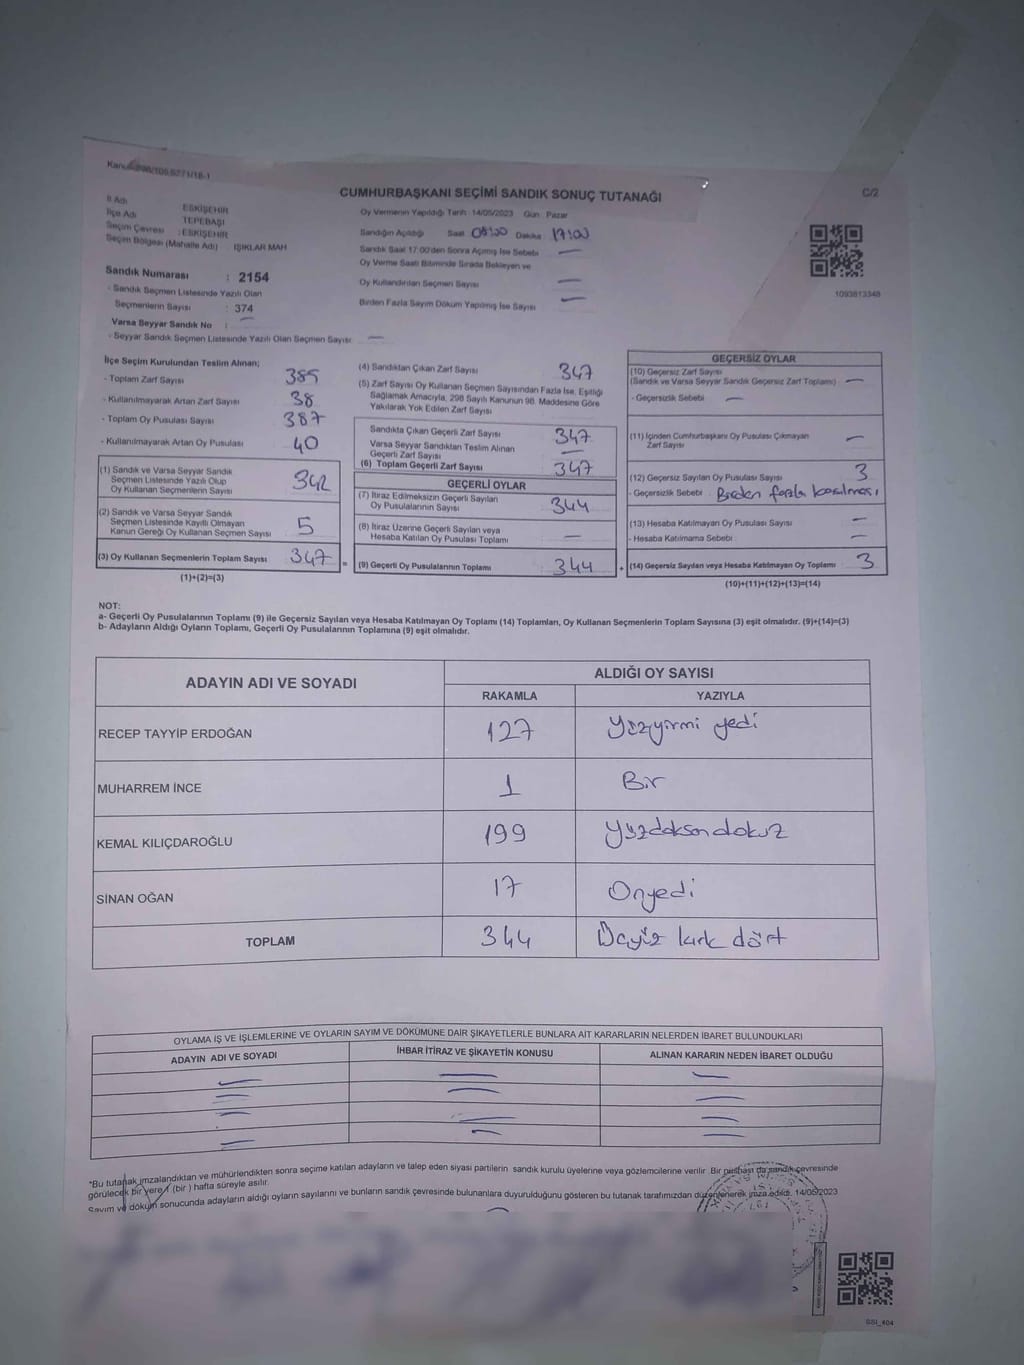 CUMHURBAŞKANI SEÇİMİ SANDIK SONUÇ TUTANAĞI
C/2
İl Adı : ESKİŞEHİR
İlçe Adı TEPEBAŞI
Seçim Çevresi : ESKİŞEHİR
Seçim Bölgesi (Mahalle Adı) : IŞIKLAR MAH
Sandık Numarası : 2154
- Sandık Seçmen Listesinde Yazılı Olan
Seçmenlerin Sayısı : 374
Varsa Seyyar Sandık No : —
- Seyyar Sandık Seçmen Listesinde Yazılı Olan Seçmen Sayısı: —
Oy Vermenin Yapıldığı Tarih : 14/05/2023 Gün : Pazar
Sandığın Açıldığı Saat 08:00 Dakika : 17:00
Sandık Saat 17:00'den Sonra Açılmış İse Sebebi —
Oy Verme Saati Bitiminde Sırada Bekleyen ve
Oy Kullandırılan Seçmen Sayısı —
Birden Fazla Sayım Döküm Yapılmış İse Sayısı —
1093813348
İlçe Seçim Kurulundan Teslim Alınan;
- Toplam Zarf Sayısı 385
- Kullanılmayarak Artan Zarf Sayısı 38
- Toplam Oy Pusulası Sayısı 387
- Kullanılmayarak Artan Oy Pusulası 40
(1) Sandık ve Varsa Seyyar Sandık
Seçmen Listesinde Yazılı Olup
Oy Kullanan Seçmenlerin Sayısı 342
(2) Sandık ve Varsa Seyyar Sandık
Seçmen Listesinde Kayıtlı Olmayan
Kanun Gereği Oy Kullanan Seçmen Sayısı 5
(3) Oy Kullanan Seçmenlerin Toplam Sayısı 347 =
(1)+(2)=(3)
(4) Sandıktan Çıkan Zarf Sayısı 347
(5) Zarf Sayısı Oy Kullanan Seçmen Sayısından Fazla İse, Eşitliği
Sağlamak Amacıyla, 298 Sayılı Kanunun 98. Maddesine Göre
Yakılarak Yok Edilen Zarf Sayısı
Sandıkta Çıkan Geçerli Zarf Sayısı 347
Varsa Seyyar Sandıktan Teslim Alınan
Geçerli Zarf Sayısı —
(6) Toplam Geçerli Zarf Sayısı 347
GEÇERLİ OYLAR
(7) İtiraz Edilmeksizin Geçerli Sayılan
Oy Pusulalarının Sayısı 344
(8) İtiraz Üzerine Geçerli Sayılan veya
Hesaba Katılan Oy Pusulası Toplamı —
(9) Geçerli Oy Pusulalarının Toplamı 344 +
GEÇERSİZ OYLAR
(10) Geçersiz Zarf Sayısı
(Sandık ve Varsa Seyyar Sandık Geçersiz Zarf Toplamı) —
- Geçersizlik Sebebi —
(11) İçinden Cumhurbaşkanı Oy Pusulası Çıkmayan
Zarf Sayısı —
(12) Geçersiz Sayılan Oy Pusulası Sayısı 3
- Geçersizlik Sebebi : Birden fazla basılması
(13) Hesaba Katılmayan Oy Pusulası Sayısı —
- Hesaba Katılmama Sebebi —
(14) Geçersiz Sayılan veya Hesaba Katılmayan Oy Toplamı 3
(10)+(11)+(12)+(13)=(14)
NOT:
a- Geçerli Oy Pusulalarının Toplamı (9) ile Geçersiz Sayılan veya Hesaba Katılmayan Oy Toplamı (14) Toplamları, Oy Kullanan Seçmenlerin Toplam Sayısına (3) eşit olmalıdır. (9)+(14)=(3)
b- Adayların Aldığı Oyların Toplamı, Geçerli Oy Pusulalarının Toplamına (9) eşit olmalıdır.
ADAYIN ADI VE SOYADI
ALDIĞI OY SAYISI
RAKAMLA YAZIYLA
RECEP TAYYİP ERDOĞAN 127 Yüzyirmi yedi
MUHARREM İNCE 1 Bir
KEMAL KILIÇDAROĞLU 199 Yüzdoksandokuz
SİNAN OĞAN 17 Onyedi
TOPLAM 344 Üçyüz kırk dört
OYLAMA İŞ VE İŞLEMLERİNE VE OYLARIN SAYIM VE DÖKÜMÜNE DAİR ŞİKAYETLERLE BUNLARA AİT KARARLARIN NELERDEN İBARET BULUNDUKLARI
ADAYIN ADI VE SOYADI İHBAR İTİRAZ VE ŞİKAYETİN KONUSU ALINAN KARARIN NEDEN İBARET OLDUĞU
*Bu tutanak imzalandıktan ve mühürlendikten sonra seçime katılan adayların ve talep eden siyasi partilerin sandık kurulu üyelerine veya gözlemcilerine verilir. Bir nüshası da sandık çevresinde
görülecek bir yere 1 (bir ) hafta süreyle asılır.
Sayım ve döküm sonucunda adayların aldığı oyların sayılarını ve bunların sandık çevresinde bulunanlara duyurulduğunu gösteren bu tutanak tarafımızdan düzenlenerek imza edildi. 14/05/2023
SSI_404